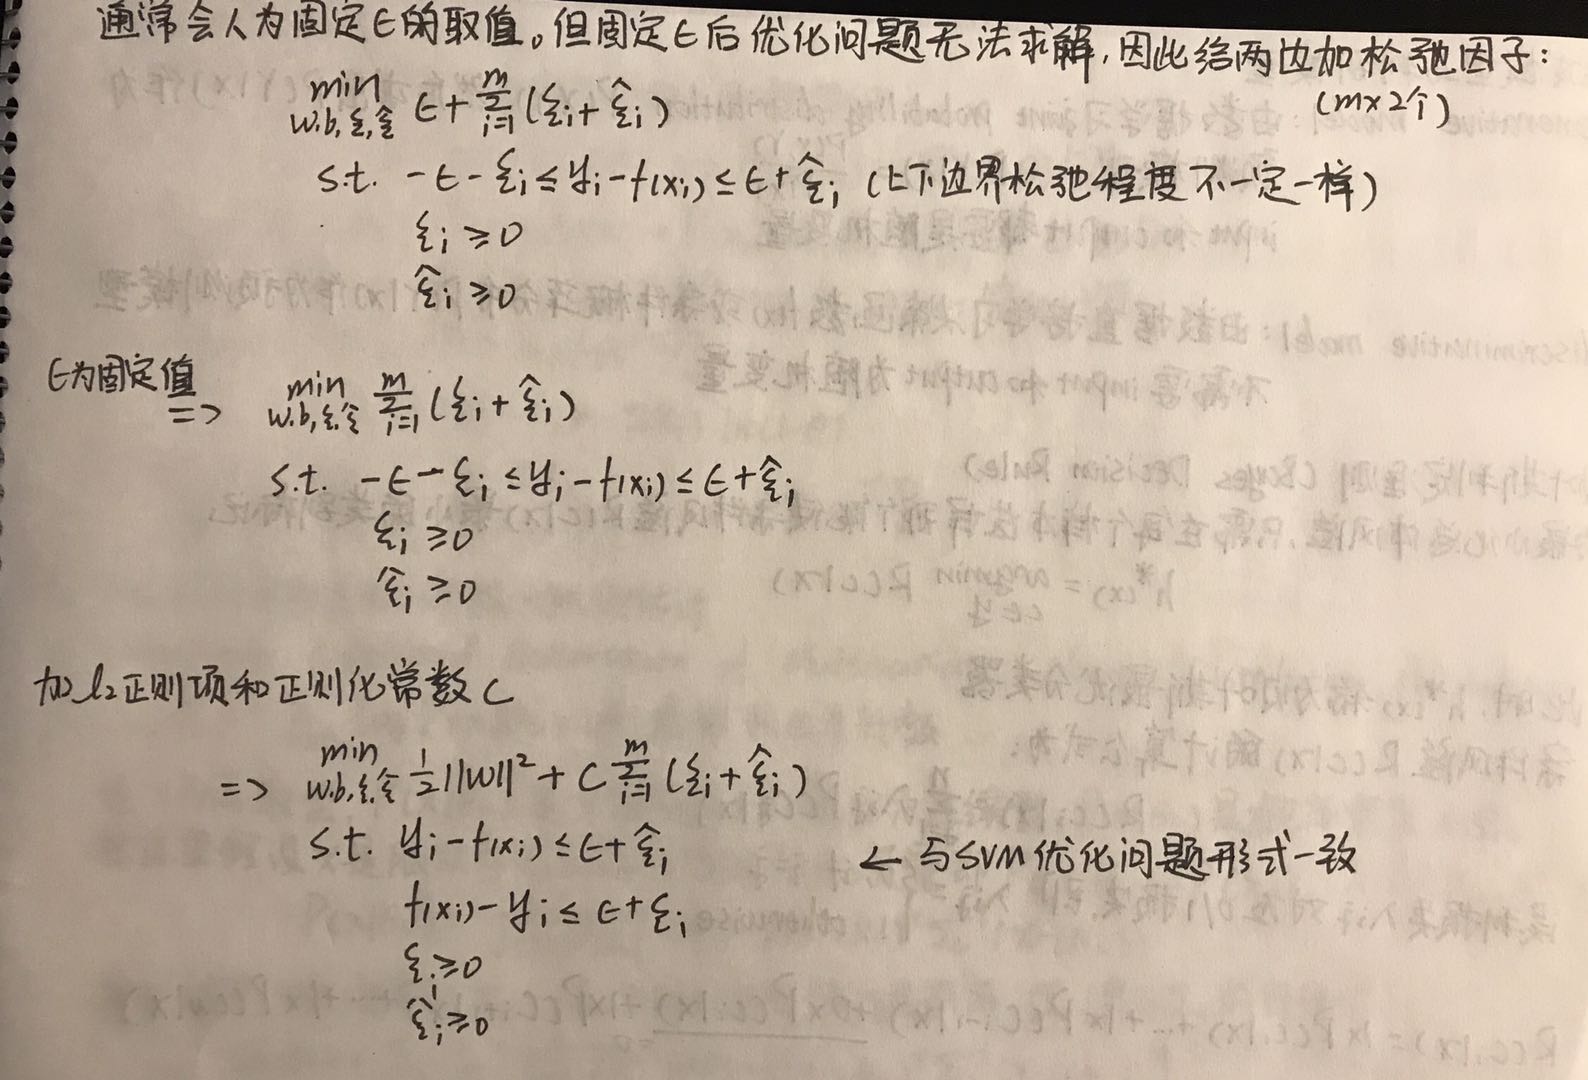 通常会人为固定ε的取值。但固定ε后优化问题无法求解,因此给两边加松弛因子:
min ε + Σ(ξi + ξ̂i) (m×2个)
w.b,ξ,ξ̂ i=1 m
s.t. -ε - ξi ≤ yi - f(xi) ≤ ε + ξ̂i (上下边界松弛程度不一定一样)
ξi ≥ 0
ξ̂i ≥ 0
ε为固定值
=> min Σ(ξi + ξ̂i)
w.b,ξ,ξ̂ i=1 m
s.t. -ε - ξi ≤ yi - f(xi) ≤ ε + ξ̂i
ξi ≥ 0
ξ̂i ≥ 0
加l₂正则项和正则化常数C
=> min ½||w||² + C Σ(ξi + ξ̂i)
w.b,ξ,ξ̂ i=1 m
s.t. yi - f(xi) ≤ ε + ξ̂i ← 与SVM优化问题形式一致
f(xi) - yi ≤ ε + ξi
ξi ≥ 0
ξ̂i ≥ 0